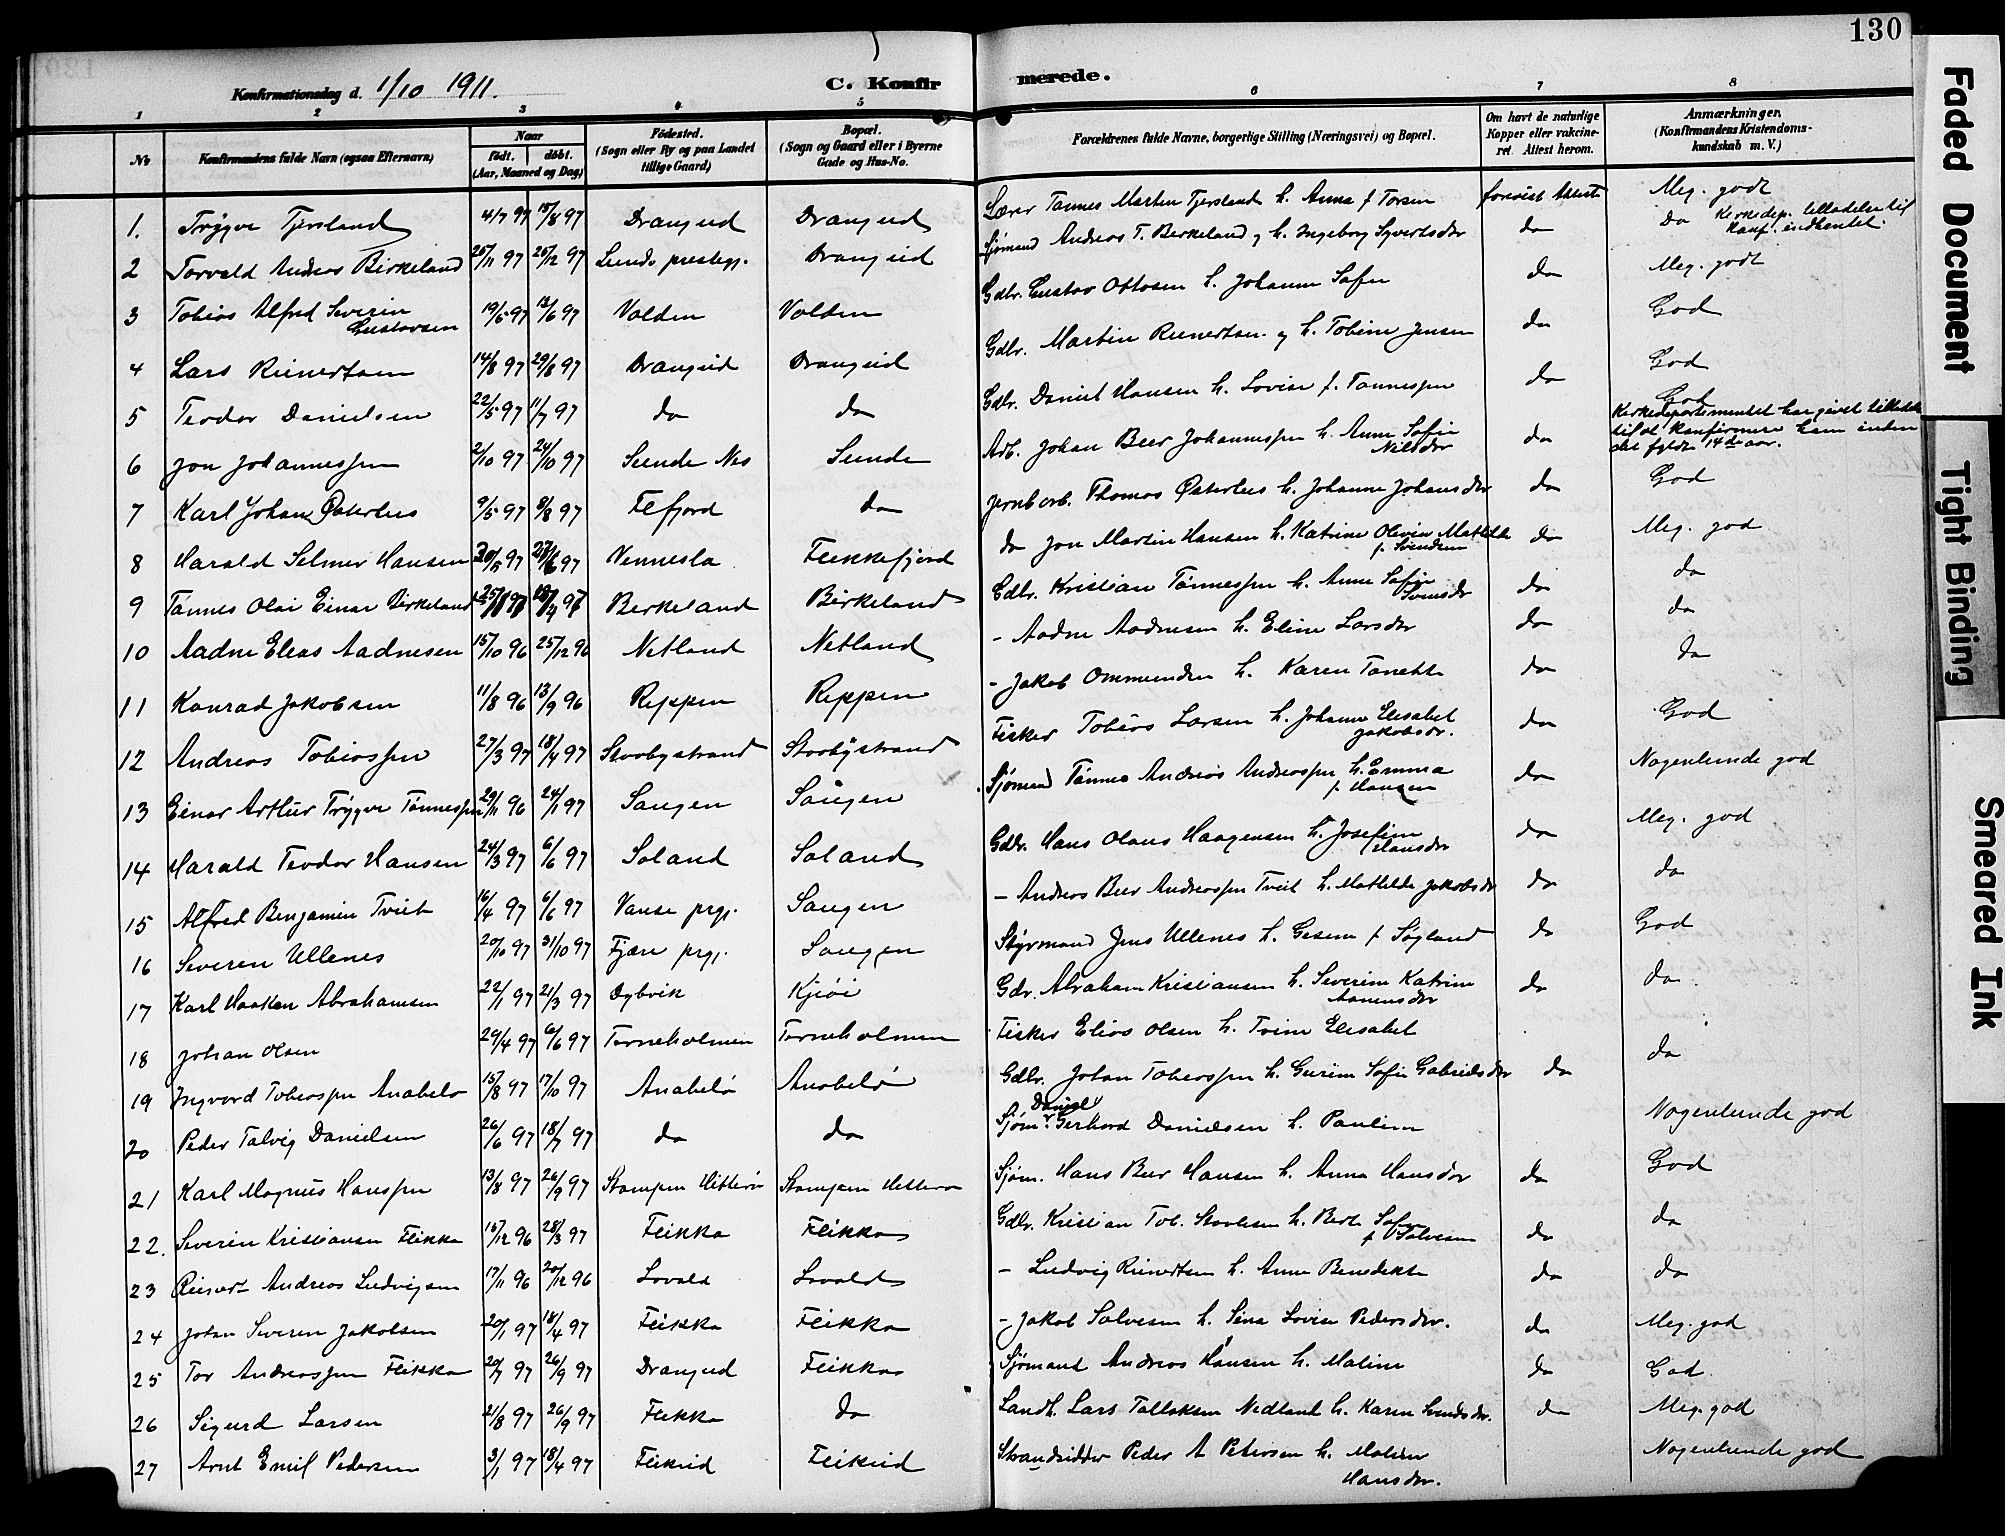 130
Konfirmationsdag d. 1/10 1911.
C. Konfirmerede.
1 2 3 4 5 6 7 8
No
Konfirmandens fulde Navn (ogsaa Efternavn)
Naar
født. døbt.
(Aar, Maaned og Dag)
Fødested.
(Sogn eller By og paa Landet
tillige Gaard)
Bopæl.
(Sogn og Gaard eller i Byerne
Gade og Hus-No.
Forældrenes fulde Navne, borgerlige Stilling (Næringsvei) og Bopæl.
Om havt de naturlige
Kopper eller vakcine-
ret. Attest herom.
Anmærkninger.
(Konfirmandens Kristendoms-
kundskab m. V.)
1. Trygve Tjersland 4/7 97 15/8 97 Drangeid Drangeid Lærer Tønnes Martin Tjersland h. Anna f Torsen forevist Attest Meg. godt
2 Torvald Andreas Birkeland 25/11 97 26/12 97 Lunds prestegj. Drangeid Sjømand Andreas T. Birkeland og h. Ingeborg Syvertsdtr do do Kirkedep. tilladelse til
Konf. indhentet.
3 Tobias Alfred Severin
Gustavsen 19/5 97 13/6 97 Volden Volden Gdbr. Gustav Ottosen h. Johanne Sofie do Meg. godt
4 Lars Reinertsen 14/8 97 29/8 97 Drangeid Drangeid Gdbr. Martin Reinertsen og h. Tobine Jensen do God
5 Teodor Danielsen 22/5 97 11/7 97 do do Gdbr. Daniel Hansen h. Lovise f. Tønnessen do God
6 Jon Johannessen 2/10 97 24/10 97 Sunde Nes Sunde Arb. Johan Beer Johannessen h. Anne Sofie
Nilsdtr do God
Kirkedepartementet har givet tilladelse
til at konfirmere ham inden
det fyldte 14de aar.
7 Karl Johan Østerhus 9/5 97 8/8 97 Fefjord do Jernb arb. Thomas Østerhus h. Johanne Johansdtr do God
8 Harald Selmer Hansen 30/5 97 27/6 97 Vennesla Flekkefjord do Jon Martin Hansen h. Katrine Olivia Matilde
f. Svendsen do Meg. god
9 Tønnes Olai Einar Birkeland Birkeland Birkeland Gdbr. Kristian Tønnessen h. Anne Sofie
Svensdtr do do
10 Aadne Elias Aadnesen 15/10 96 25/12 96 Netland Netland - Aadne Aadnesen h. Eline Larsdtr do do
11 Konrad Jakobsen 11/8 96 13/9 96 Reppen Reppen - Jakob Ommundsen h. Karen Tonette do do
12 Andreas Tobiassen 27/3 97 18/4 97 Stoobystrand Stoobystrand Fisker Tobias Larsen h. Johanne Elisabet
Jakobsdtr. do God
13 Einar Arthur Trygve Tønnessen 29/11 96 24/1 97 Saugen Saugen Sjømand Tønnes Andreas Andreassen h. Emma
f Hansen do Nogenlunde god
14 Harald Teodor Hansen 24/3 97 6/6 97 Soland Soland Gdbr. Hans Olaus Haagensen h. Josefine
Hansdtr do Meg. god
15 Alfred Benjamin Tveit 16/4 97 6/6 97 Vanse prgj. Saugen - Andreas Beer Andreassen Tveit h. Matilde Jakobsdtr do do
16 Severin Ullenes 20/10 97 31/10 97 Fjære prgj. Saugen Styrmand Jens Ullenes h. Gesine f Søyland do God
17 Karl Haakon Abrahamsen 22/1 97 21/3 97 Dybvik Kjiøi Gdr. Abraham Kristiansen h. Severine Katrine
Aanensdtr do do
18 Johan Olsen 29/4 97 6/6 97 Torneholmen Torneholmen Fisker Elias Olsen h. Trine Elisabet
19 Ingvard Tobiassen Anabelø 15/8 97 17/10 97 Anabelø Anabelø Gdbr. Johan Tobiassen h. Gurine Sofie Gabrielsdtr do do
20 Peder Talvig Danielsen 26/6 97 18/7 97 do do Sjøm. Daniel Gerhard Danielsen h. Pauline Nogenlunde god
21 Karl Magnus Hanssen 13/8 97 26/9 97 Stampen Hitterø Stampen Hitterø Sjøm. Hans Beer Hansen h. Anna Hansdtr do God
22. Severin Kristiansen Flikka 15/12 96 28/3 97 Flikka Flikka Gdbr. Kristian Tob. h. Berte Sofie
f Salvesen do do
23 Reinert Andreas Ludvigsen 17/11 96 20/12 96 Lovald Lovald - Ludvig Reinertsen h. Anne Benedikte do do
24 Johan Severin Jakobsen 20/1 97 18/4 97 Flikka Flikka - Jakob Salvesen h. Sina Lovise Pedersdtr. do Meg. god
25 Tor Andreassen Flikka 20/7 97 26/9 97 Drangeid Flikka Sjømand Andreas Hansen h. Maline do God
26 Sigurd Larsen 21/8 97 26/9 97 Flikka do Landh. Lars Tallaksen Nedland h. Karen Svendsdtr. do Meg. god
27 Arnt Emil Pedersen 3/1 97 18/4 97 Flikeid Flikeid Strandsidder Peder A Petersen h. Maline
Hansdtr. Nogenlunde god
Faded Document
Tight Binding
Smeared Ink